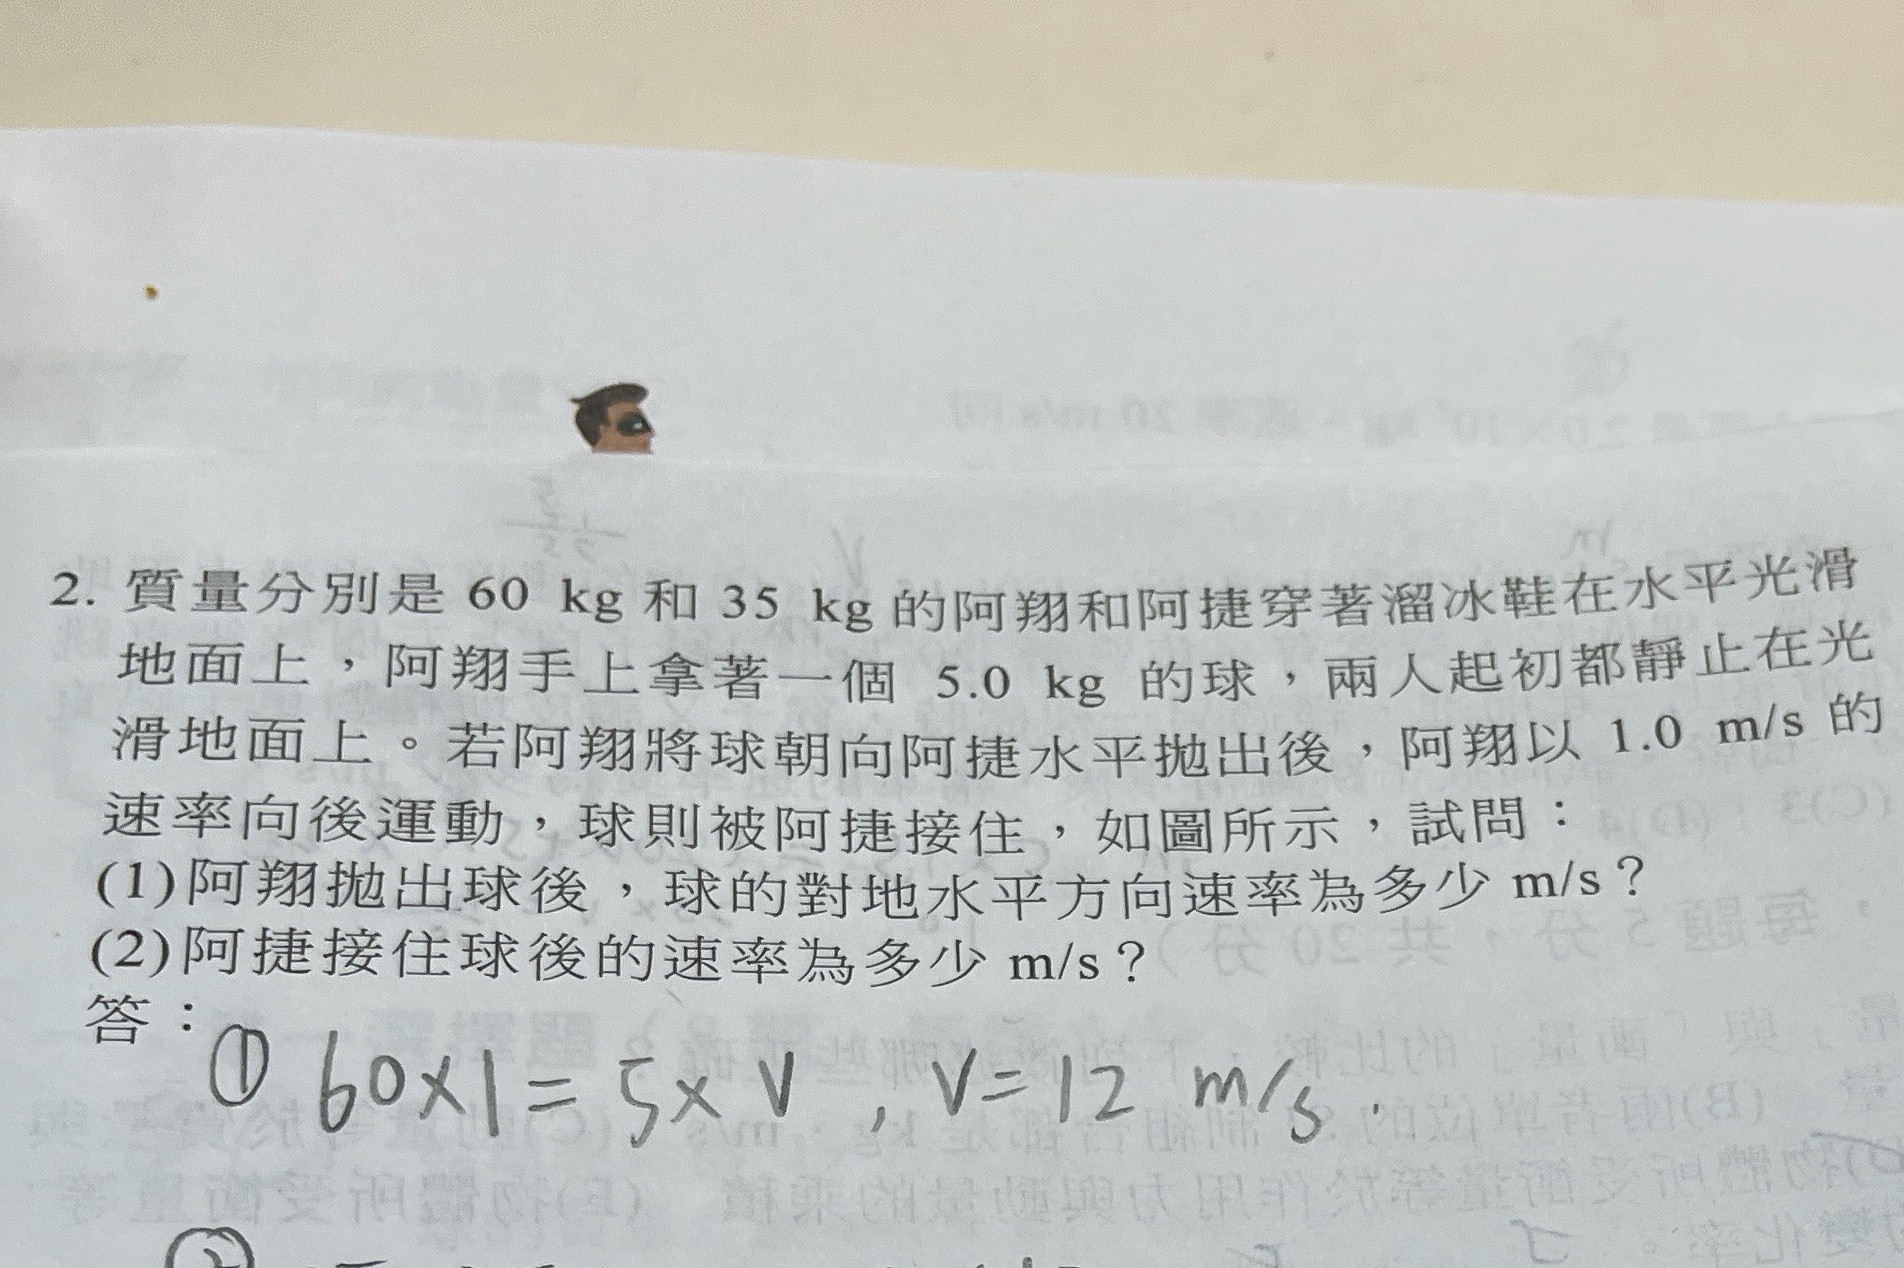 2. 質量分別是 60 kg 和 35 kg 的阿翔和阿捷穿著溜冰鞋在水平光滑
地面上，阿翔手上拿著一個 5.0 kg 的球，兩人起初都靜止在光
滑地面上。若阿翔將球朝向阿捷水平拋出後，阿翔以 1.0 m/s 的
速率向後運動，球則被阿捷接住，如圖所示，試問：
(1)阿翔拋出球後，球的對地水平方向速率為多少 m/s？
(2)阿捷接住球後的速率為多少 m/s？
答：
① 60×1=5×V , V=12 m/s.